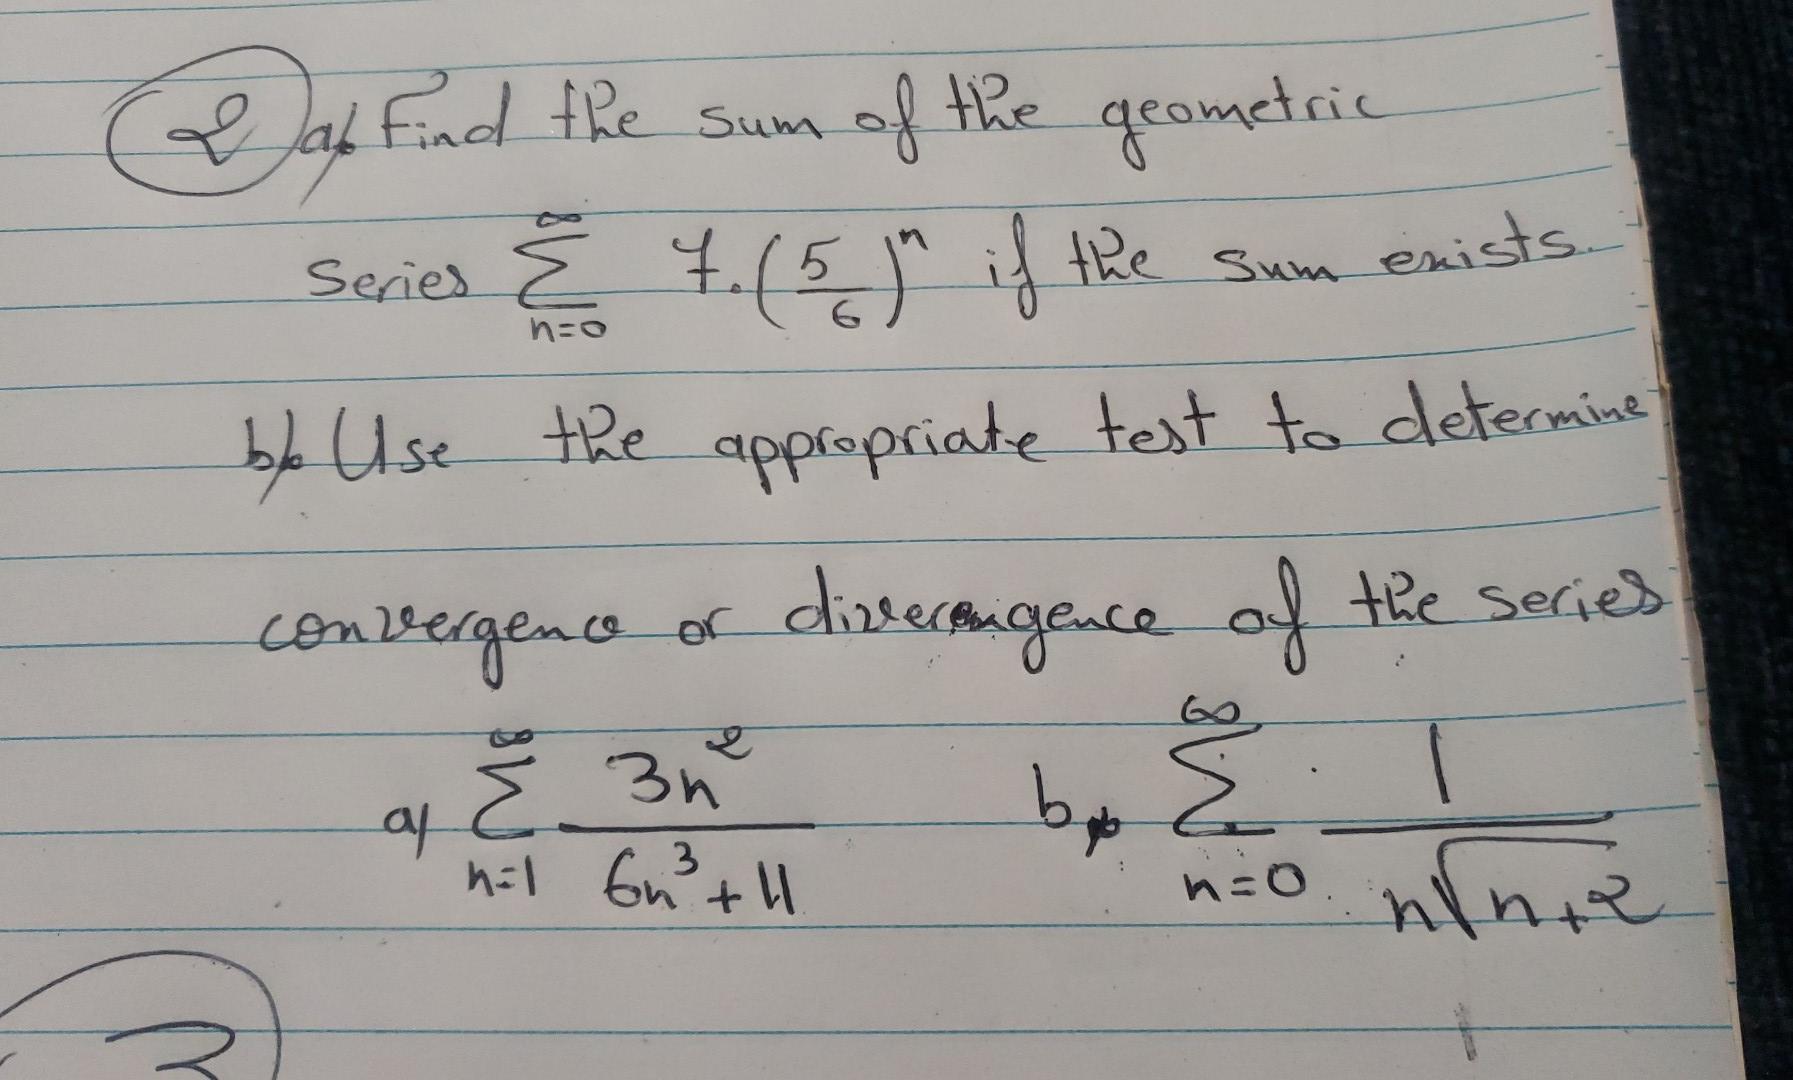 2 a/ Find the sum of the geometric
series ∞ Σ n=0 7.(5/6)^n if the sum exists.
b/ Use the appropriate test to determine
convergence or divergence of the series
a/ ∞ Σ n=1 3n^2/6n^3+11 b/ ∞ Σ n=0 1/n√n+2
3